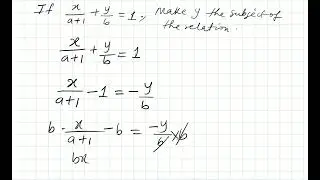 If x/(a+1) + y/b = 1, make y the subject of
the relation.
x/(a+1) + y/b = 1
x/(a+1) - 1 = -y/b
b · x/(a+1) - b = -y/b × b
bx